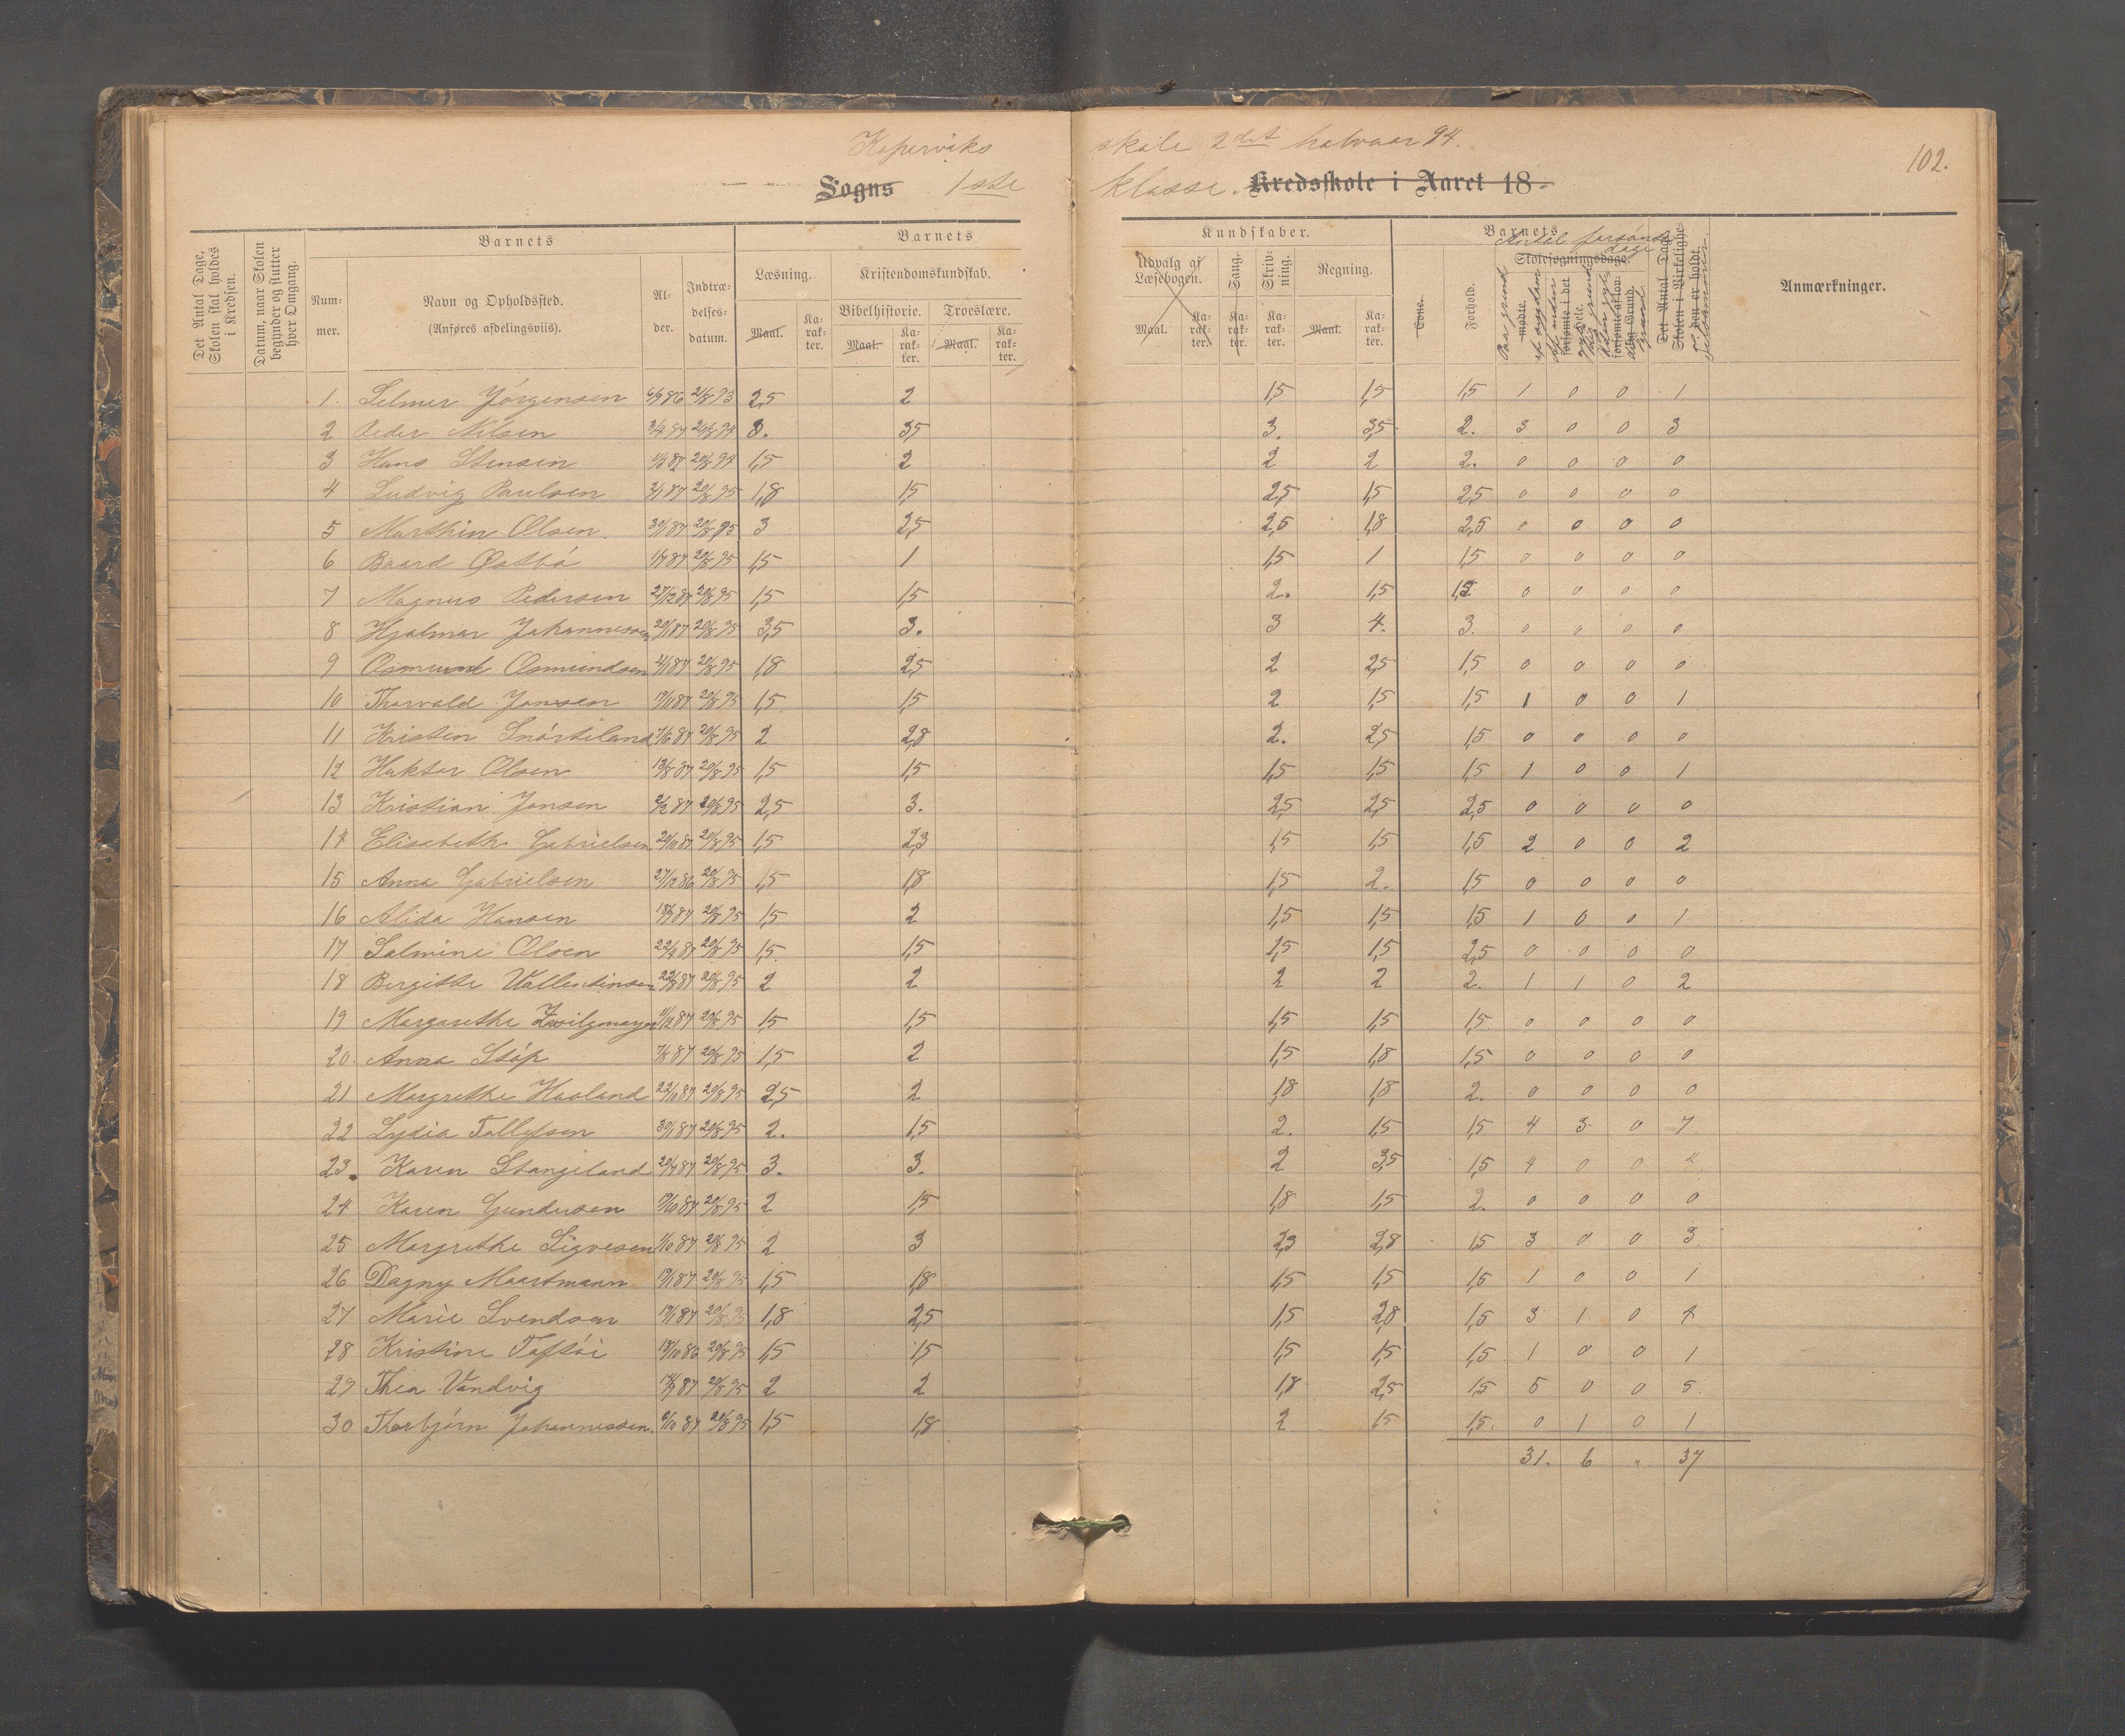 Koperviks skole 2det halvaar 94.
102.
Sogns 1ste klasse. Kredsskole i Aaret 18
Det Antal Dage, Skolen skal holdes i Kredsen.
Datum, naar Skolen begynder og slutter hver Omgang.
Barnets
Num-mer.
Navn og Opholdssted. (Anføres afdelingsviis).
Al-der.
Indtræ-delses-datum.
Barnets Kundskaber.
Læsning. Maal. Ka-rak-ter.
Kristendomskundskab.
Bibelhistorie. Maal. Ka-rak-ter.
Troeslære. Maal. Ka-rak-ter.
Udvalg af Læsebogen. Maal. Ka-rak-ter.
Sang. Ka-rak-ter.
Skriv-ning. Ka-rak-ter.
Regning. Maal. Ka-rak-ter.
Barnets
Evne.
Forhold.
Antal forsømte dage
Skolesøgningsdage.
mødte.
forsømte i det Hele.
forsømte af lov-lig Grund.
Det Antal Dage Skolen i Virkelighe-den er holdt.
Anmærkninger.
1. Selmer Jørgensen 6/9 86 21/8 93 2,5 2 1,5 1,5 1,5 1 0 0 1
2 Peder Nilsen 3/4 87 20/8 94 3. 3,5 3. 3,5 2. 3 0 0 3
3 Hans Stensen 1/3 87 20/8 94 1,5 2 2 2 2. 0 0 0 0
4 Ludvig Paulsen 2/1 87 20/8 95 1,8 1,5 2,5 1,5 2,5 0 0 0 0
5 Marthin Olsen. 30/1 87 20/8 95 3 2,5 2,5 1,8 2,5 0 0 0 0
6 Baard Østbø 1/7 87 20/8 95 1,5 1 1,5 1 1,5 0 0 0 0
7 Magnus Pedersen 27/12 87 20/8 95 1,5 1,5 2. 1,5 1,5 0 0 0 0
8 Hjalmar Johannessen 20/1 87 20/8 95 3,5 3. 3 4. 3. 0 0 0 0
9 Osmund Osmundsen 4/1 87 20/8 95 1,8 2,5 2 2,5 1,5 0 0 0 0
10 Thorvald Jansen 19/11 87 20/8 95 1,5 1,5 2 1,5 1,5 1 0 0 1
11 Kristen Snørteland 7/6 87 20/8 95 2 2,8 2. 2,5 1,5 0 0 0 0
12 Hektor Olsen 13/8 87 20/8 95 1,5 1,5 1,5 1,5 1,5 1 0 0 1
13 Kristian Jonsen 2/2 87 20/8 95 2,5 3. 2,5 2,5 2,5 0 0 0 0
14 Elisabeth Gabrielsen 20/10 87 20/8 95 1,5 2,3 1,5 1,5 1,5 2 0 0 2
15 Anna Gabrielsen 27/12 86 20/8 95 1,5 1,8 1,5 2. 1,5 0 0 0 0
16 Alida Hansen 18/9 87 20/8 95 1,5 2 1,5 1,5 1,5 1 0 0 1
17 Salmine Olsen 22/4 87 20/8 95 1,5 1,5 1,5 1,5 2,5 0 0 0 0
18 Bergitte Vallentinsen 22/8 87 20/8 95 2 2 2 2 2. 1 1 0 2
19 Margarethe Zwilgmayer 1/12 87 20/8 95 1,5 1,5 1,5 1,5 1,5 0 0 0 0
20. Anna Støp 7/5 87 20/8 95 1,5 2 1,5 1,8 1,5 0 0 0 0
21 Margrethe Haaland 22/10 87 20/8 95 2,5 2 1,8 1,8 2. 0 0 0 0
22 Lydia Tollefsen 30/1 87 20/8 95 2. 1,5 2. 1,5 1,5 4 3 0 7
23. Karen Stangeland 20/7 87 20/8 95 3. 3. 2 3,5 1,5 4 0 0 4
24 Karen Gundersen 19/10 87 20/8 95 2 1,5 1,8 1,5 2. 0 0 0 0
25 Margrethe Sigvesen 1/10 87 20/8 95 2 3 2,3 2,8 1,5 3 0 0 3.
26 Dagny Maartmann 19/1 87 20/8 95 1,5 1,8 1,5 1,5 1,5 1 0 0 1
27 Marie Svendsen 19/1 87 20/8 95 1,8 2,5 1,5 2,8 1,5 3 1 0 4
28 Kristine Toftøi 18/10 86 20/8 95 1,5 1,5 1,5 1,5 1,5. 1 0 0 1
29 Thea Vandvig 14/9 87 20/8 95 2 2 1,8 2,5 1,5 5 0 0 5.
30 Thorbjørn Johannessen. 6/10 87 20/8 95 1,5 1,8 2 1,5 1,5. 0 1 0 1
31. 6 " 37